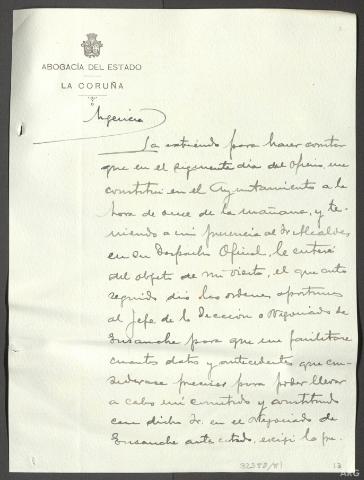 ABOGACÍA DEL ESTADO
LA CORUÑA
La extiendo para hacer constar
que en el siguiente día del oficio, me
constituí en el Ayuntamiento a la
hora de once de la mañana, y te-
niendo a mi presencia al Sr. Alcalde,
en su Despacho Oficial, le enteré
del objeto de mi visita, el que acto
seguido dio las ordenes oportunas
al Jefe de la Sección o Negociado de
Ensanche para que me facilitara
cuantos datos y antecedentes que con-
siderase precisos para poder llevar
a cabo mi cometido y constituido
con dicho Sr. en el Negociado de
Ensanche ante citado, exigí la pre-
32388/81
13
ARG